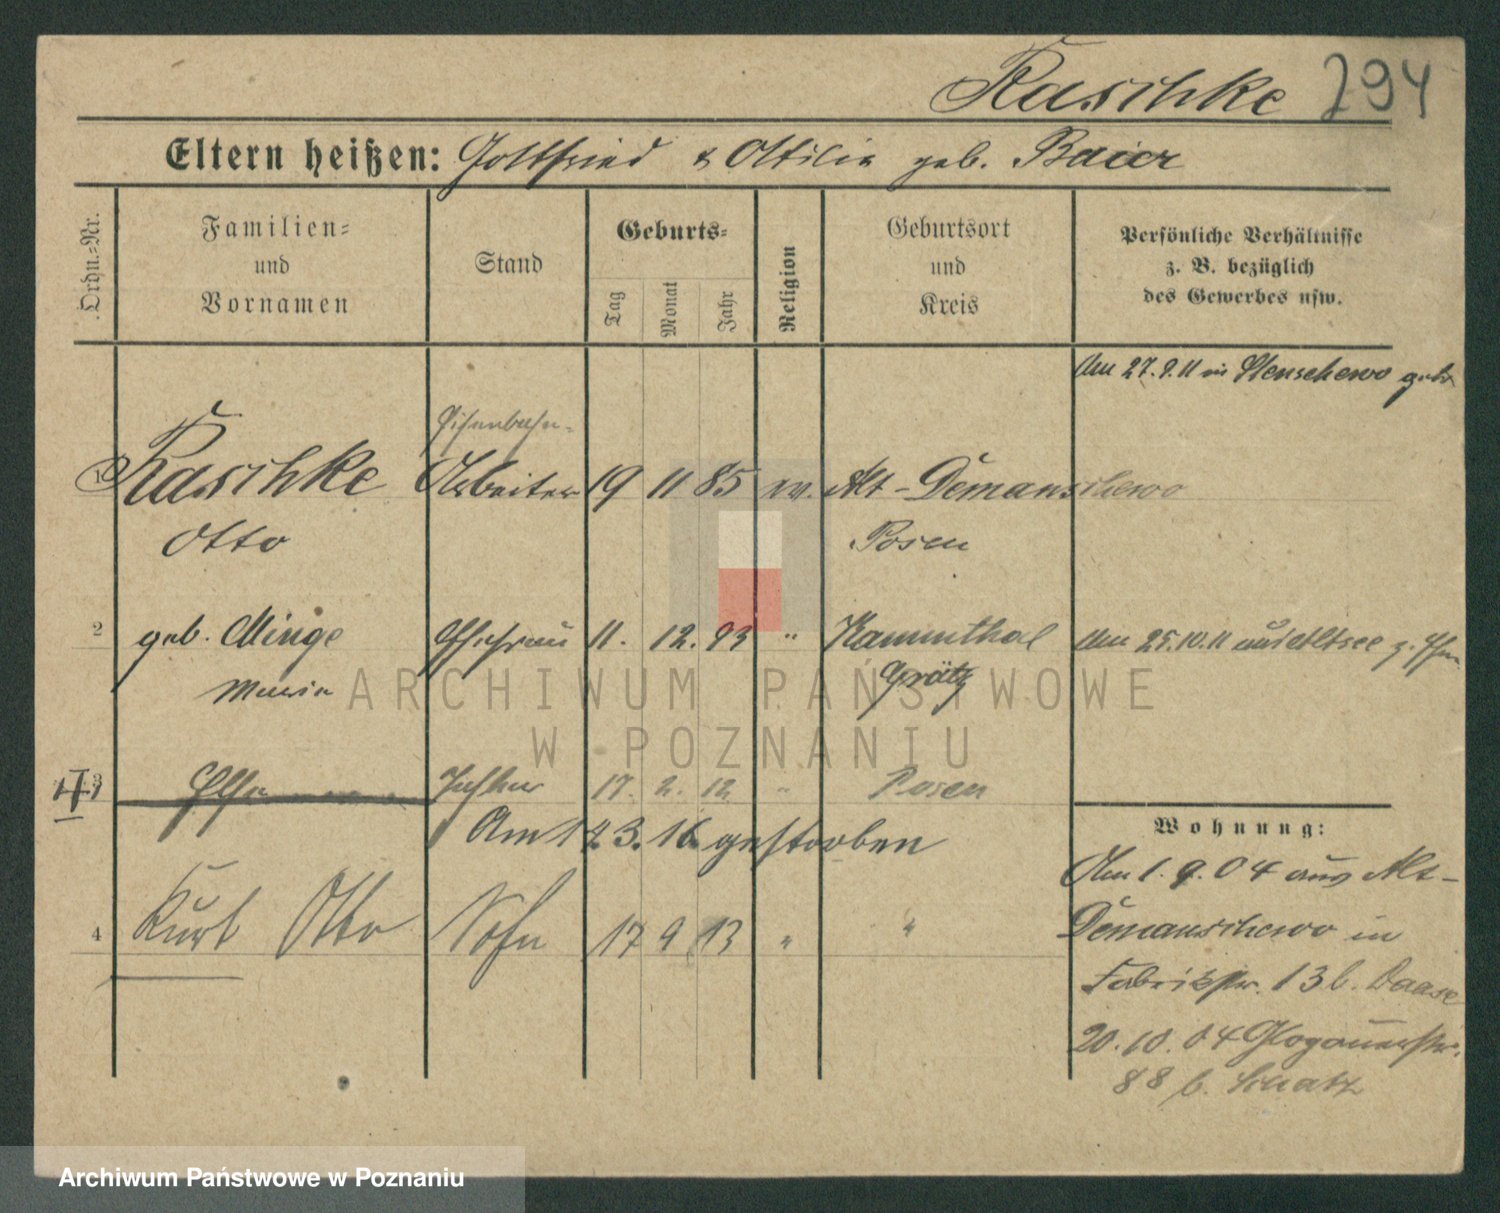 Raschke 294
Eltern heißen: Gottfried & Ottilie geb. Baier
Ordn.-Nr.
Familien-
und
Vornamen
Stand
Geburts-
Tag
Monat
Jahr
Religion
Geburtsort
und
Kreis
Persönliche Verhältnisse
z. B. bezüglich
des Gewerbes usw.
Am 27.9.11 in Stenschewo getr
Eisenbahn-
1 Raschke Arbeiter 19 11 85 ev. Alt-Demanschewo
Otto Posen
2 geb. Minge Ehefrau 11. 12. 93 " Kammthal
Maria Grätz
Am 25.10.11 aus Altsee z. Ehm.
3 Else Tochter 17. 2. 12 " Posen
Am 14.3.16 gestorben
4 Kurt Otto Sohn 17 9 13 " "
Wohnung:
Am 1.9.04 aus Alt-
Demanschewo in
Fabrikstr. 13 b. Daase
20.10.04 Glogauerstr.
88 b. Schatz
ARCHIWUM PAŃSTWOWE
W POZNANIU
Archiwum Państwowe w Poznaniu